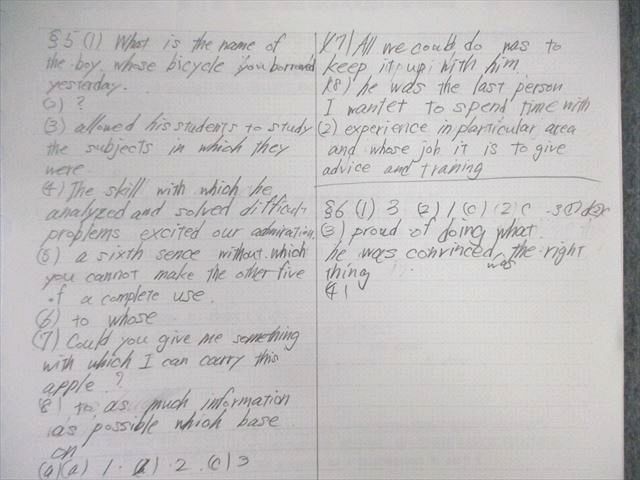 §5 (1) What is the name of
the boy whose bicycle you borrowed
yesterday.
(2) ?
(3) allowed his students to study
the subjects in which they
were
(4) The skill with which he
analyzed and solved difficult
problems excited our admiration.
(5) a sixth sence without which
you cannot make the other five
of a complete use.
(6) to whose
(7) Could you give me something
with which I can carry this
apple?
(8) to as much information
as possible which base
on
(a) 1. 2 (c) 3
(7) All we could do was to
keep it up with him.
(8) he was the last person
I wantet to spend time with
(2) experience in particular area
and whose job it is to give
advice and training
§6 (1) 3 (2) 1 (c) (2 c
(3) proud of doing what
he was convinced was the right
thing
(4)